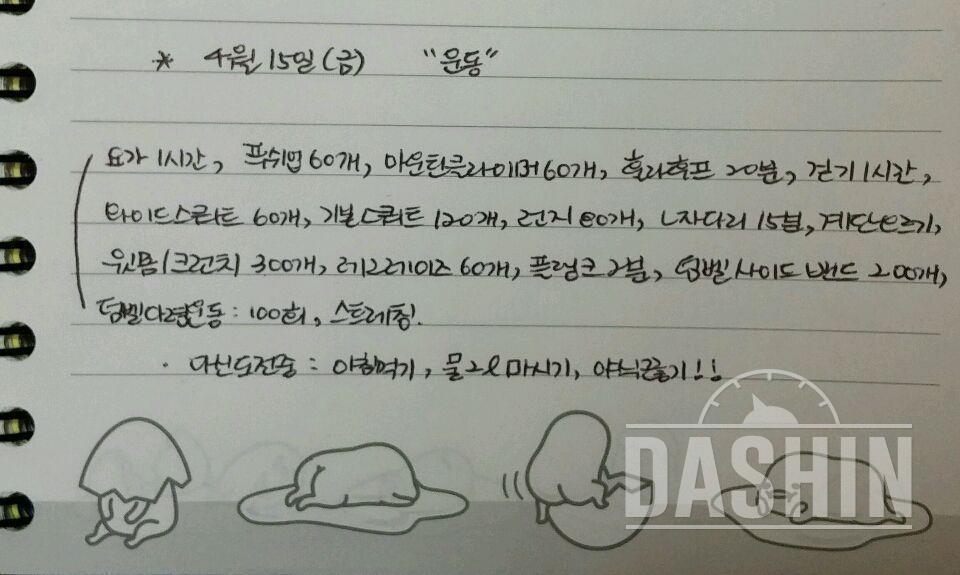 * 4월 15일(금) "운동"
요가 1시간, 푸쉬업 60개, 마운틴클라이머 60개, 훌라후프 20분, 걷기 1시간,
와이드스쿼트 60개, 기본스쿼트 120개, 런지 80개, L자다리 15분, 계단오르기,
윗몸/크런치 300개, 레그레이즈 60개, 플랭크 2분, 덤벨사이드밴드 200개,
덤벨다령운동 : 100회, 스트레칭.
· 다신도전中 : 아침먹기, 물2l마시기, 야식끊기!!
DASHIN